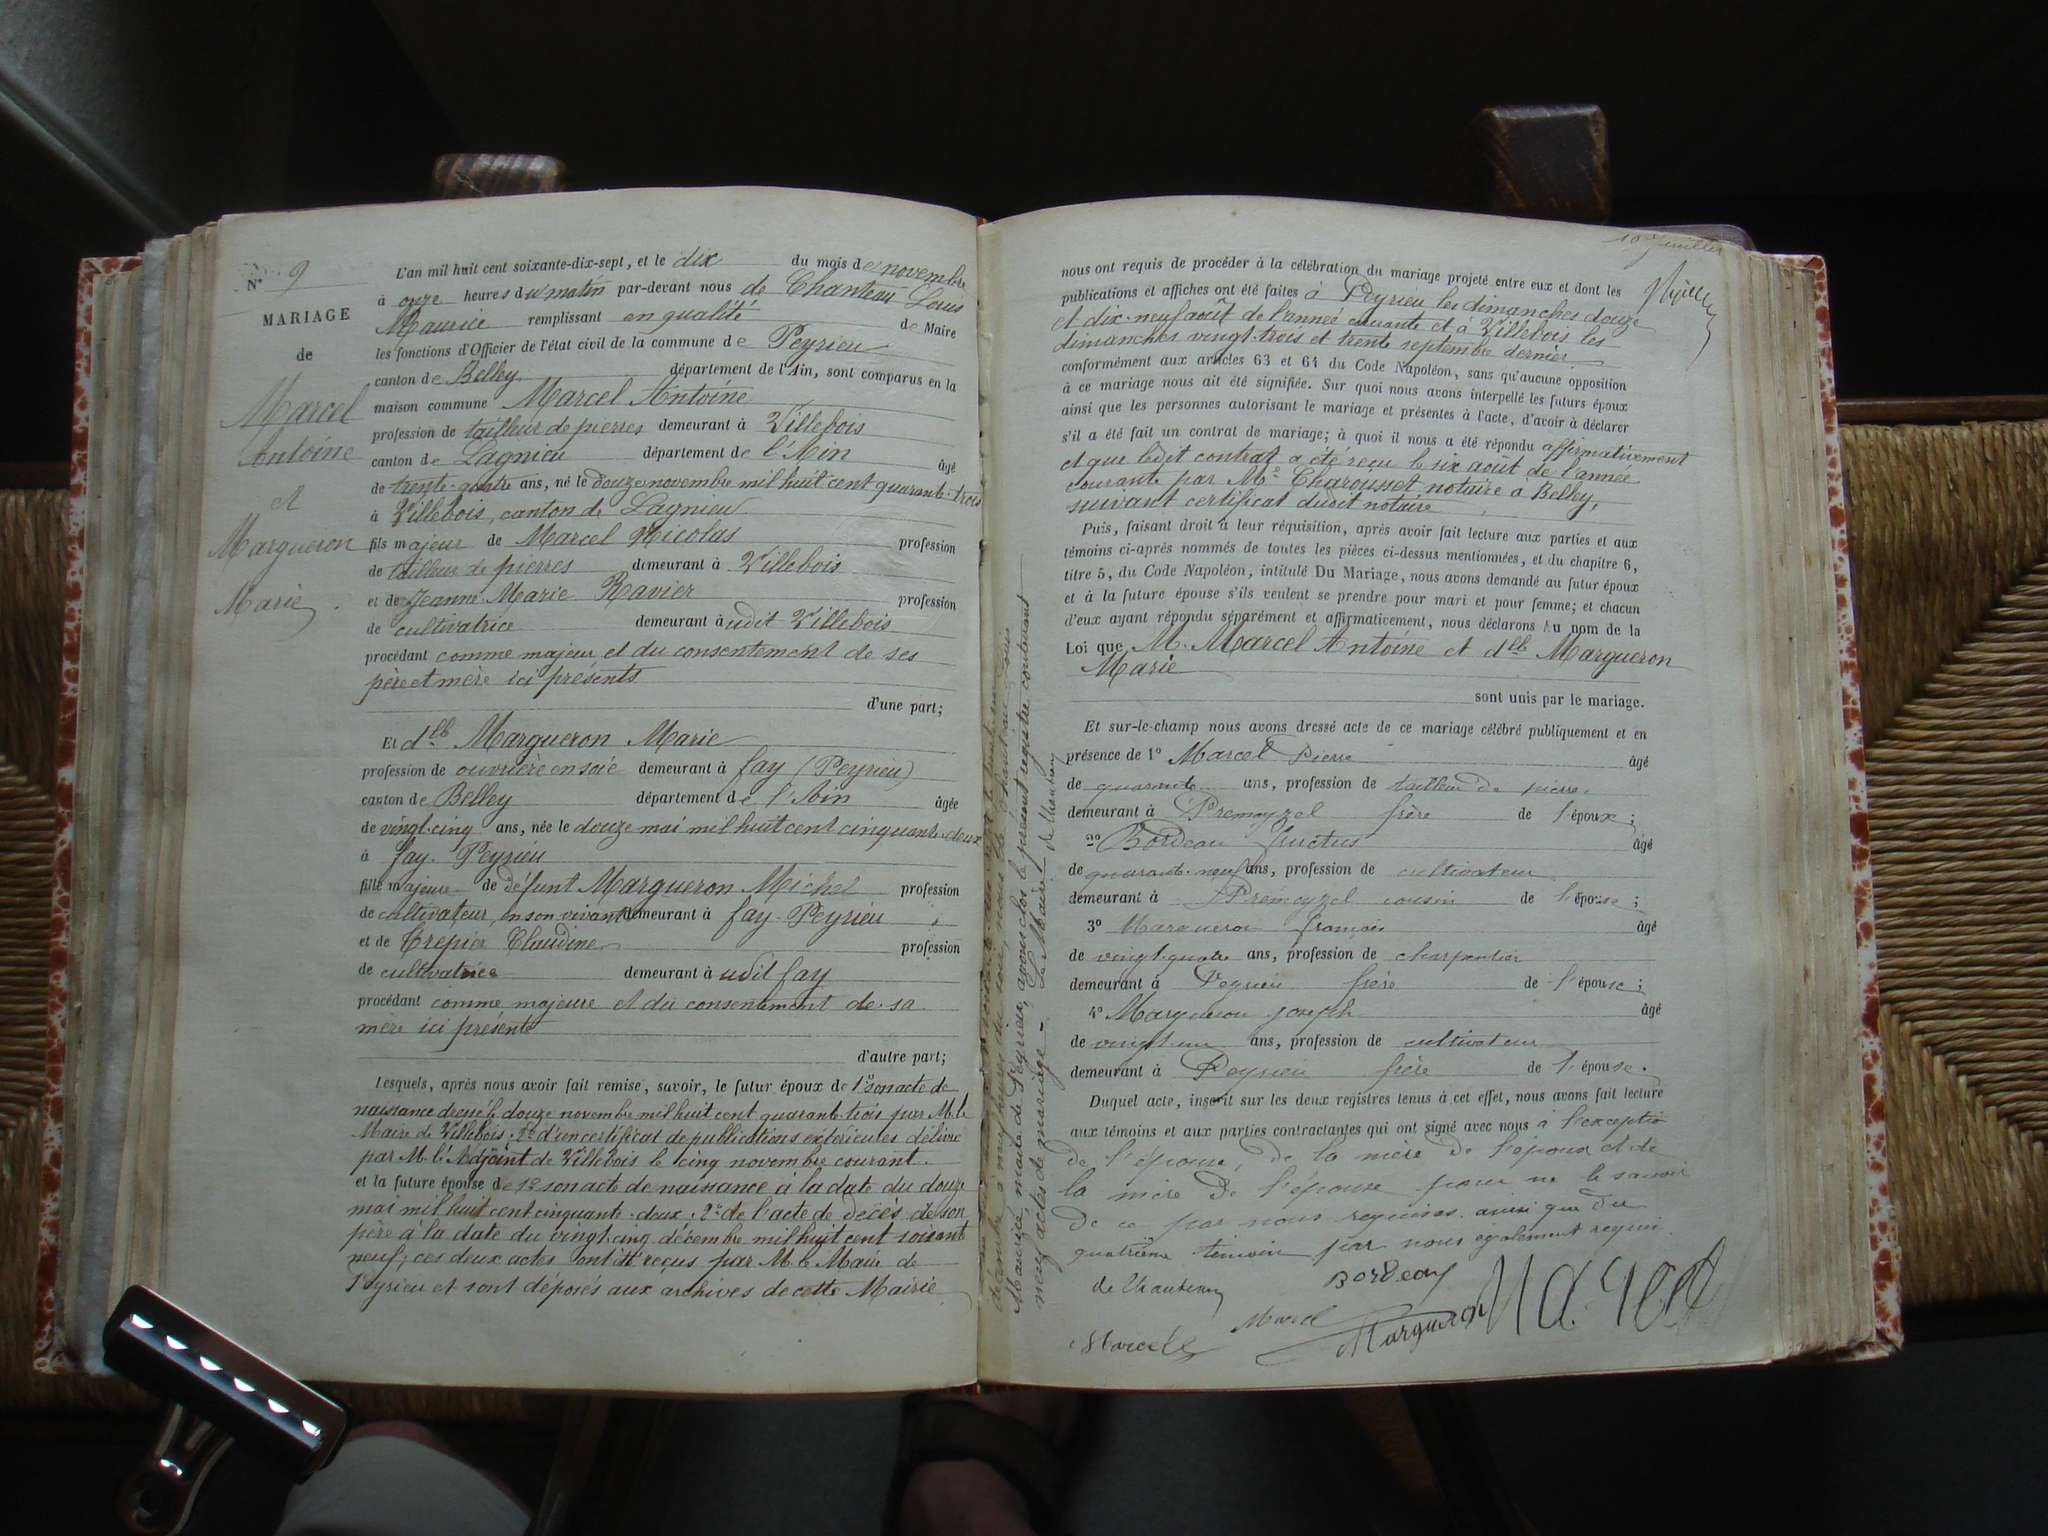 N° 9
MARIAGE
de
Marcel
Antoine
et
Margueron
Marie
L'an mil huit cent soixante-dix-sept, et le dix du mois de novembre
à onze heures du matin par-devant nous de Chanteau Louis
Maurice remplissant en qualité de Maire
les fonctions d'Officier de l'état civil de la commune de Peyrieu
canton de Belley département de l'Ain, sont comparus en la
maison commune Marcel Antoine
profession de tailleur de pierres demeurant à Villebois
canton de Lagnieu département de l'Ain âgé
de trente-quatre ans, né le douze novembre mil huit cent quarante-trois
à Villebois, canton de Lagnieu
fils majeur de Marcel Nicolas profession
de tailleur de pierres demeurant à Villebois
et de Jeanne Marie Ravier profession
de cultivatrice demeurant à udit Villebois
procédant comme majeur et du consentement de ses
père et mère ici présents
d'une part;
Et dlle Margueron Marie
profession de ouvrière en soie demeurant à fay (Peyrieu)
canton de Belley département de l'Ain âgée
de vingt-cinq ans, née le douze mai mil huit cent cinquante-deux
à fay. Peyrieu
fille majeure de défunt Margueron Michel profession
de cultivateur, en son vivant demeurant à fay. Peyrieu
et de Trepier Claudine profession
de cultivatrice demeurant à udit fay
procédant comme majeure et du consentement de sa
mère ici présente
d'autre part;
Lesquels, après nous avoir fait remise, savoir, le futur époux de 1° son acte de
naissance dressé le douze novembre mil huit cent quarante-trois par M. le
Maire de Villebois. 2° d'un certificat de publications extérieures délivré
par M. l'Adjoint de Villebois le cinq novembre courant.
et la future épouse de 1° son acte de naissance à la date du douze
mai mil huit cent cinquante-deux. 2° de l'acte de décès de son
père à la date du vingt-cinq décembre mil huit cent soixante
neuf; ces deux actes ont été reçus par M. le Maire de
Peyrieu et sont déposés aux archives de cette Mairie
Maurice, maire de Peyrieu, avons clos le présent registre contenant
neuf actes de mariage - Le Maire
10e feuillet
nous ont requis de procéder à la célébration du mariage projeté entre eux et dont les
publications et affiches ont été faites à Peyrieu les dimanches douze
et dix-neuf août de l'année courante et à Villebois les
dimanches vingt-trois et trente septembre dernier
conformément aux articles 63 et 64 du Code Napoléon, sans qu'aucune opposition
à ce mariage nous ait été signifiée. Sur quoi nous avons interpellé les futurs époux
ainsi que les personnes autorisant le mariage et présentes à l'acte, d'avoir à déclarer
s'il a été fait un contrat de mariage; à quoi il nous a été répondu affirmativement
et que ledit contrat a été reçu le six août de l'année
courante par Me Charousset notaire à Belley,
suivant certificat dudit notaire
Puis, faisant droit à leur réquisition, après avoir fait lecture aux parties et aux
témoins ci-après nommés de toutes les pièces ci-dessus mentionnées, et du chapitre 6,
titre 5, du Code Napoléon, intitulé Du Mariage, nous avons demandé au futur époux
et à la future épouse s'ils veulent se prendre pour mari et pour femme; et chacun
d'eux ayant répondu séparément et affirmativement, nous déclarons au nom de la
Loi que M. Marcel Antoine et dlle Margueron
Marie
sont unis par le mariage.
Et sur-le-champ nous avons dressé acte de ce mariage célébré publiquement et en
présence de 1° Marcel Pierre âgé
de quarante ans, profession de tailleur de pierre
demeurant à Premeyzel frère de l'époux;
2° Bordeau Fructus âgé
de quarante-neuf ans, profession de cultivateur
demeurant à Premeyzel cousin de l'épouse;
3° Margueron françois âgé
de vingt-quatre ans, profession de charpentier
demeurant à Peyrieu frère de l'épouse;
4° Margueron joseph âgé
de vingt un ans, profession de cultivateur
demeurant à Peyrieu frère de l'épouse.
Duquel acte, inscrit sur les deux registres tenus à cet effet, nous avons fait lecture
aux témoins et aux parties contractantes qui ont signé avec nous à l'exceptio
de l'épouse, de la mère de l'époux et de
la mère de l'épouse pour ne le savoir
de ce par nous requises. ainsi que du
quatrième témoin par nous également requis
de Chanteau
Bordeau
Marcel
Marcel
Margueron
Marcel